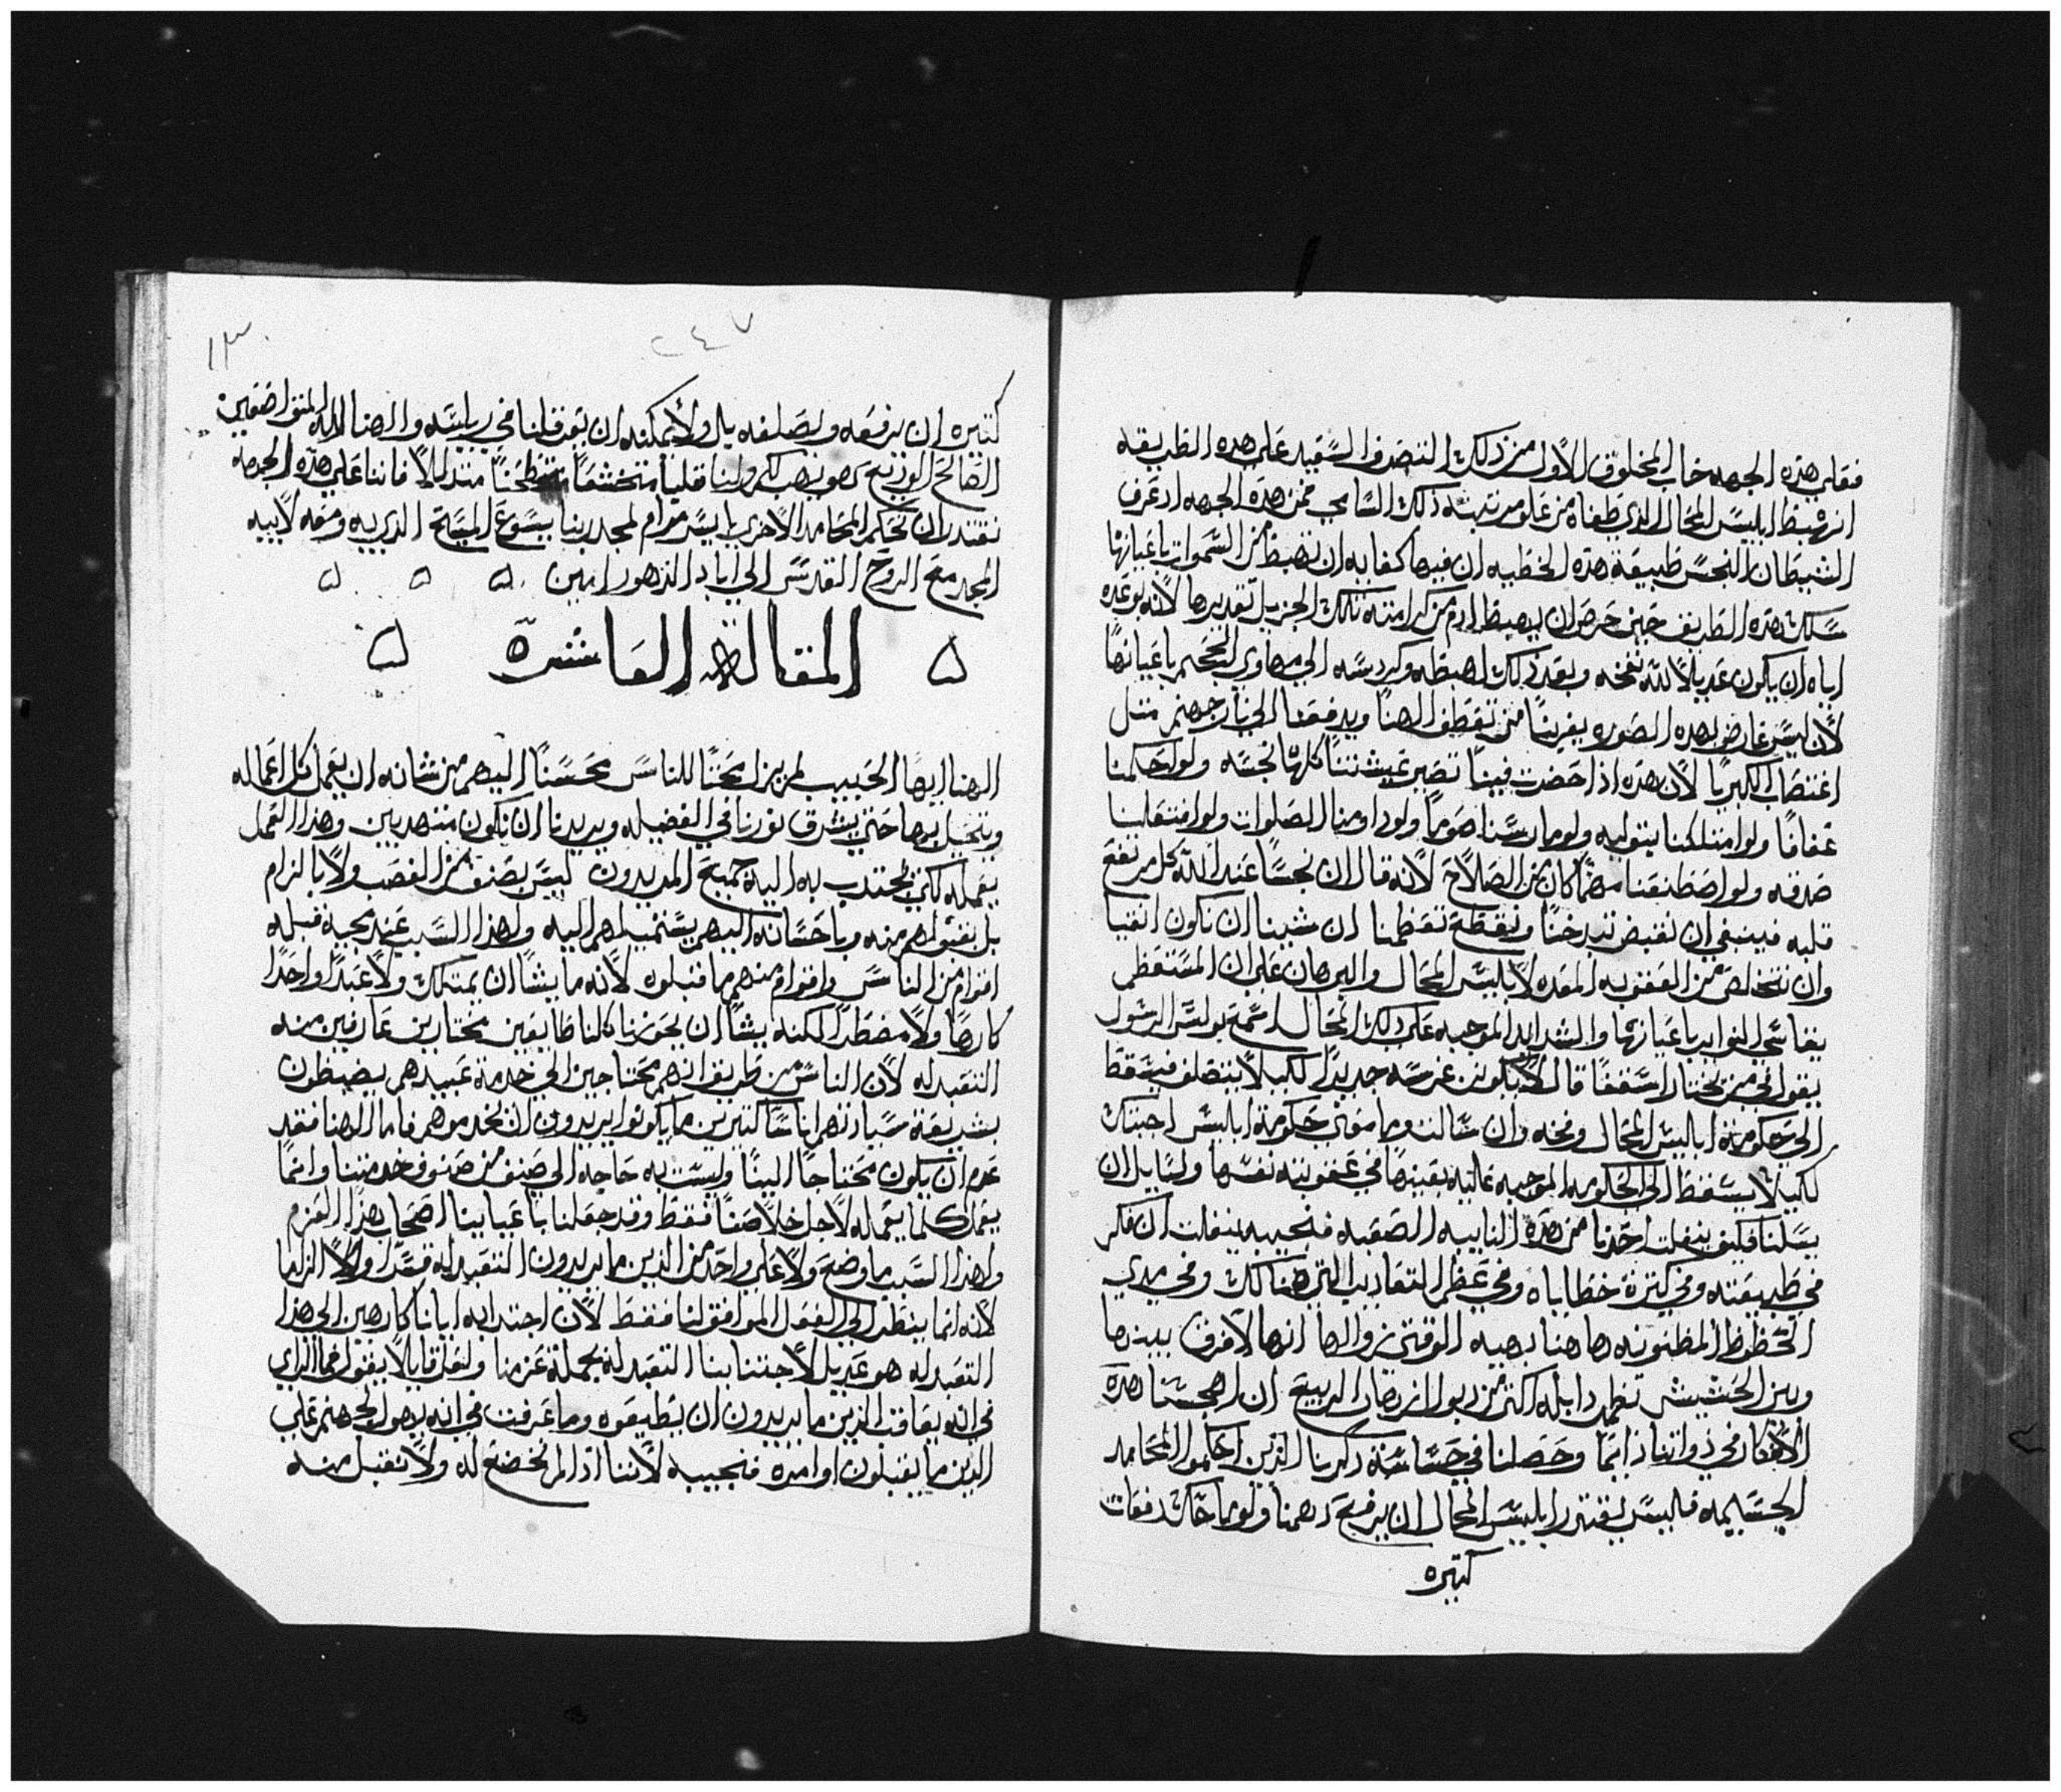 فعلي هذه الجهه خاب المخلوق الاول من ذلك التصرف السعيد علي هذه الطريقه
انهبط ابليس المحال الذي طغاه من علو مرتبته ذلك السامي فمن هذه الجهه اذ عرف
الشيطان النجس طبيعة هذه الخطيه ان فيها كفايه ان تهبط من السموات باعيانها
سلك هذه الطريق حين حرص ان يهبط ادم من كرامته تلك الجزيل تقديرها لانه بوعده
اياه ان يكون عديلاً لله نفخه وبعد ذلك اهبطه وكردسه الي مهاوي الجحيم باعيانها
لان ليس عارض بهذه الصوره يغربنا من تعطف الهنا ويدفعنا الي نار جهنم مثل
اغتصاب الكبريا لان هذه اذا حضرت فينا تصير عيشتنا كلها نجسه ولو احكمنا
عفافًا ولو امتلكنا بتوليه ولو مارسنا صومًا ولو داومنا الصلوات ولو افتعلنا
صدقه ولو اصطنعنا مهما كان من الصلاح لانه قال ان نجسًا عند الله كل مرتفع
قلبه فينبغي ان نقبض تبذخنا ونقطع تعظمنا ان شينا ان نكون انقيا
وان نتخلص من العقوبه المعده لابليس المحال والبرهان علي ان المستعظم
يقاسي النوايب باعيانها والشدايد الموجبه علي ذلك المحال اسمع بولس الرسول
يقول في من يختار اسقفًا قال لا يكون غرسه جديدًا لكيلا يتصلف فيسقط
الي حكومة ابليس المحال وفخه وان سالت وما معني حكومة ابليس اجبتك
لكيلا يسقط الي الحكومه الموجبه عليه بعينها في عقوبته نفسها ولسايل ان
يسلنا فكيف ينفلت احدنا من هذه النايبه الصعبه فنجيبه ينفلت ان فكر
في طبيعته وفي كثرة خطاياه وفي عظم التعاذيب التي هنالك وفي مدي
الحظوظ المظنونه هاهنا بهيه الوقتي زوالها انها لا فرق بينها
وبين الحشيش تظهر دابله اكثر من دبول ازهار الربيع ان اهجسنا هذه
الافكار في ذواتنا دايمًا وحصلنا في حساسة ذكرنا الذين احكموا المحامد
الجسيمه فليس يقتدر ابليس المحال ان يرفع ذهننا ولو ماحك دفعات
كثيره
٢٤٧
١٣٠
كثيره ان يرفعه ويصلفه بل ولا يمكنه ان يعرقلنا في رياسه والهنا اله المتواضعين
الصالح الوديع هو يهب لكم ولنا قلبًا متخشعًا متطحنًا متذللاً فاننا علي هذه الجهه
نقتدر ان نحكم المحامد الاخري بايسر مرام لمجد ربنا يسوع المسيح الذي به ومعه لابيه
المجد مع الروح القدس الي اباد الدهور امين
المقاله العاشره
الهنا ايها الحبيب لم يزل محبًا للناس محسنًا اليهم من شانه ان يعمل كل اعماله
ويتحيل بها حتي يشرق نورنا في الفضيله ويريدنا ان نكون منتهدبين وهذا العمل
يعمله لكي يجتدب به اليه جميع المريدون ليس بصنف من الغصب ولا بالزام
بل بقبولهم منه وباحسانه اليهم يستميلهم اليه ولهذا السبب عند مجيه قبله
اقوام من الناس واقوام منهم ما قبلوه لانه ما يشا ان يمتلك ولا عبدًا واحدًا
كارهًا ولا مضطرًا لكنه يشا ان يحوزنا كلنا طايعين مختارين عارفين منه
التعبد له لان الناس من طريق انهم محتاجين الي خدمة عبيدهم يضبطون
بشريعة سيادتهم اناسًا كثيرين ما يكونوا يريدون ان يخدموهم فاما الهنا فقد
عدم ان يكون محتاجًا الينا وليست به حاجه الي صنف من صنوف خدمتنا وانما
يعمل كلما يعمله لاجل خلاصنا فقط وقد جعلنا باعياننا اصحاب هذا العزم
ولهذا السبب ما وضع ولا علي واحد من الذين ما يريدون التعبد له قسرًا ولا الزاما
لانه انما ينظر الي الفعل الموافق لنا فقط لان اجتدابه ايانا كارهين الي هذا
التعبد له هو عديل لاجتنابنا التعبد له بجملة عزمنا ولعل قايلاً يقول فما الراي
في انه يعاقب الذين ما يريدون ان يطيعوه وما عرفت في انه يهول بجهنم علي
الذين ما يقبلون اوامره فنجيبه لاننا اذ لم نخضع له ولا نقبل منه